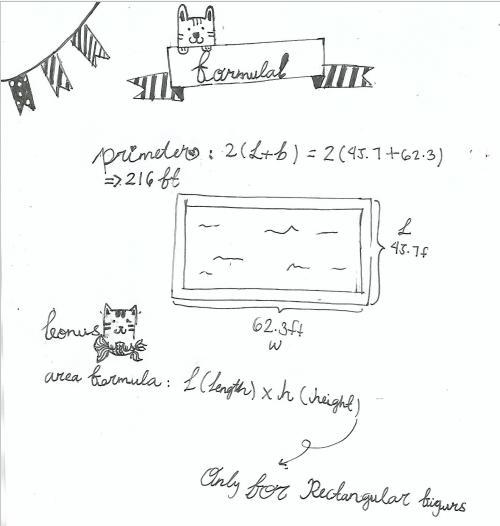 formula!
primeter : 2(L+b) = 2(45.7+62.3)
=> 216 ft
L
45.7f
62.3ft
W
bonus
area formula: L (length) x h (height)
Only for Rectangular figurs